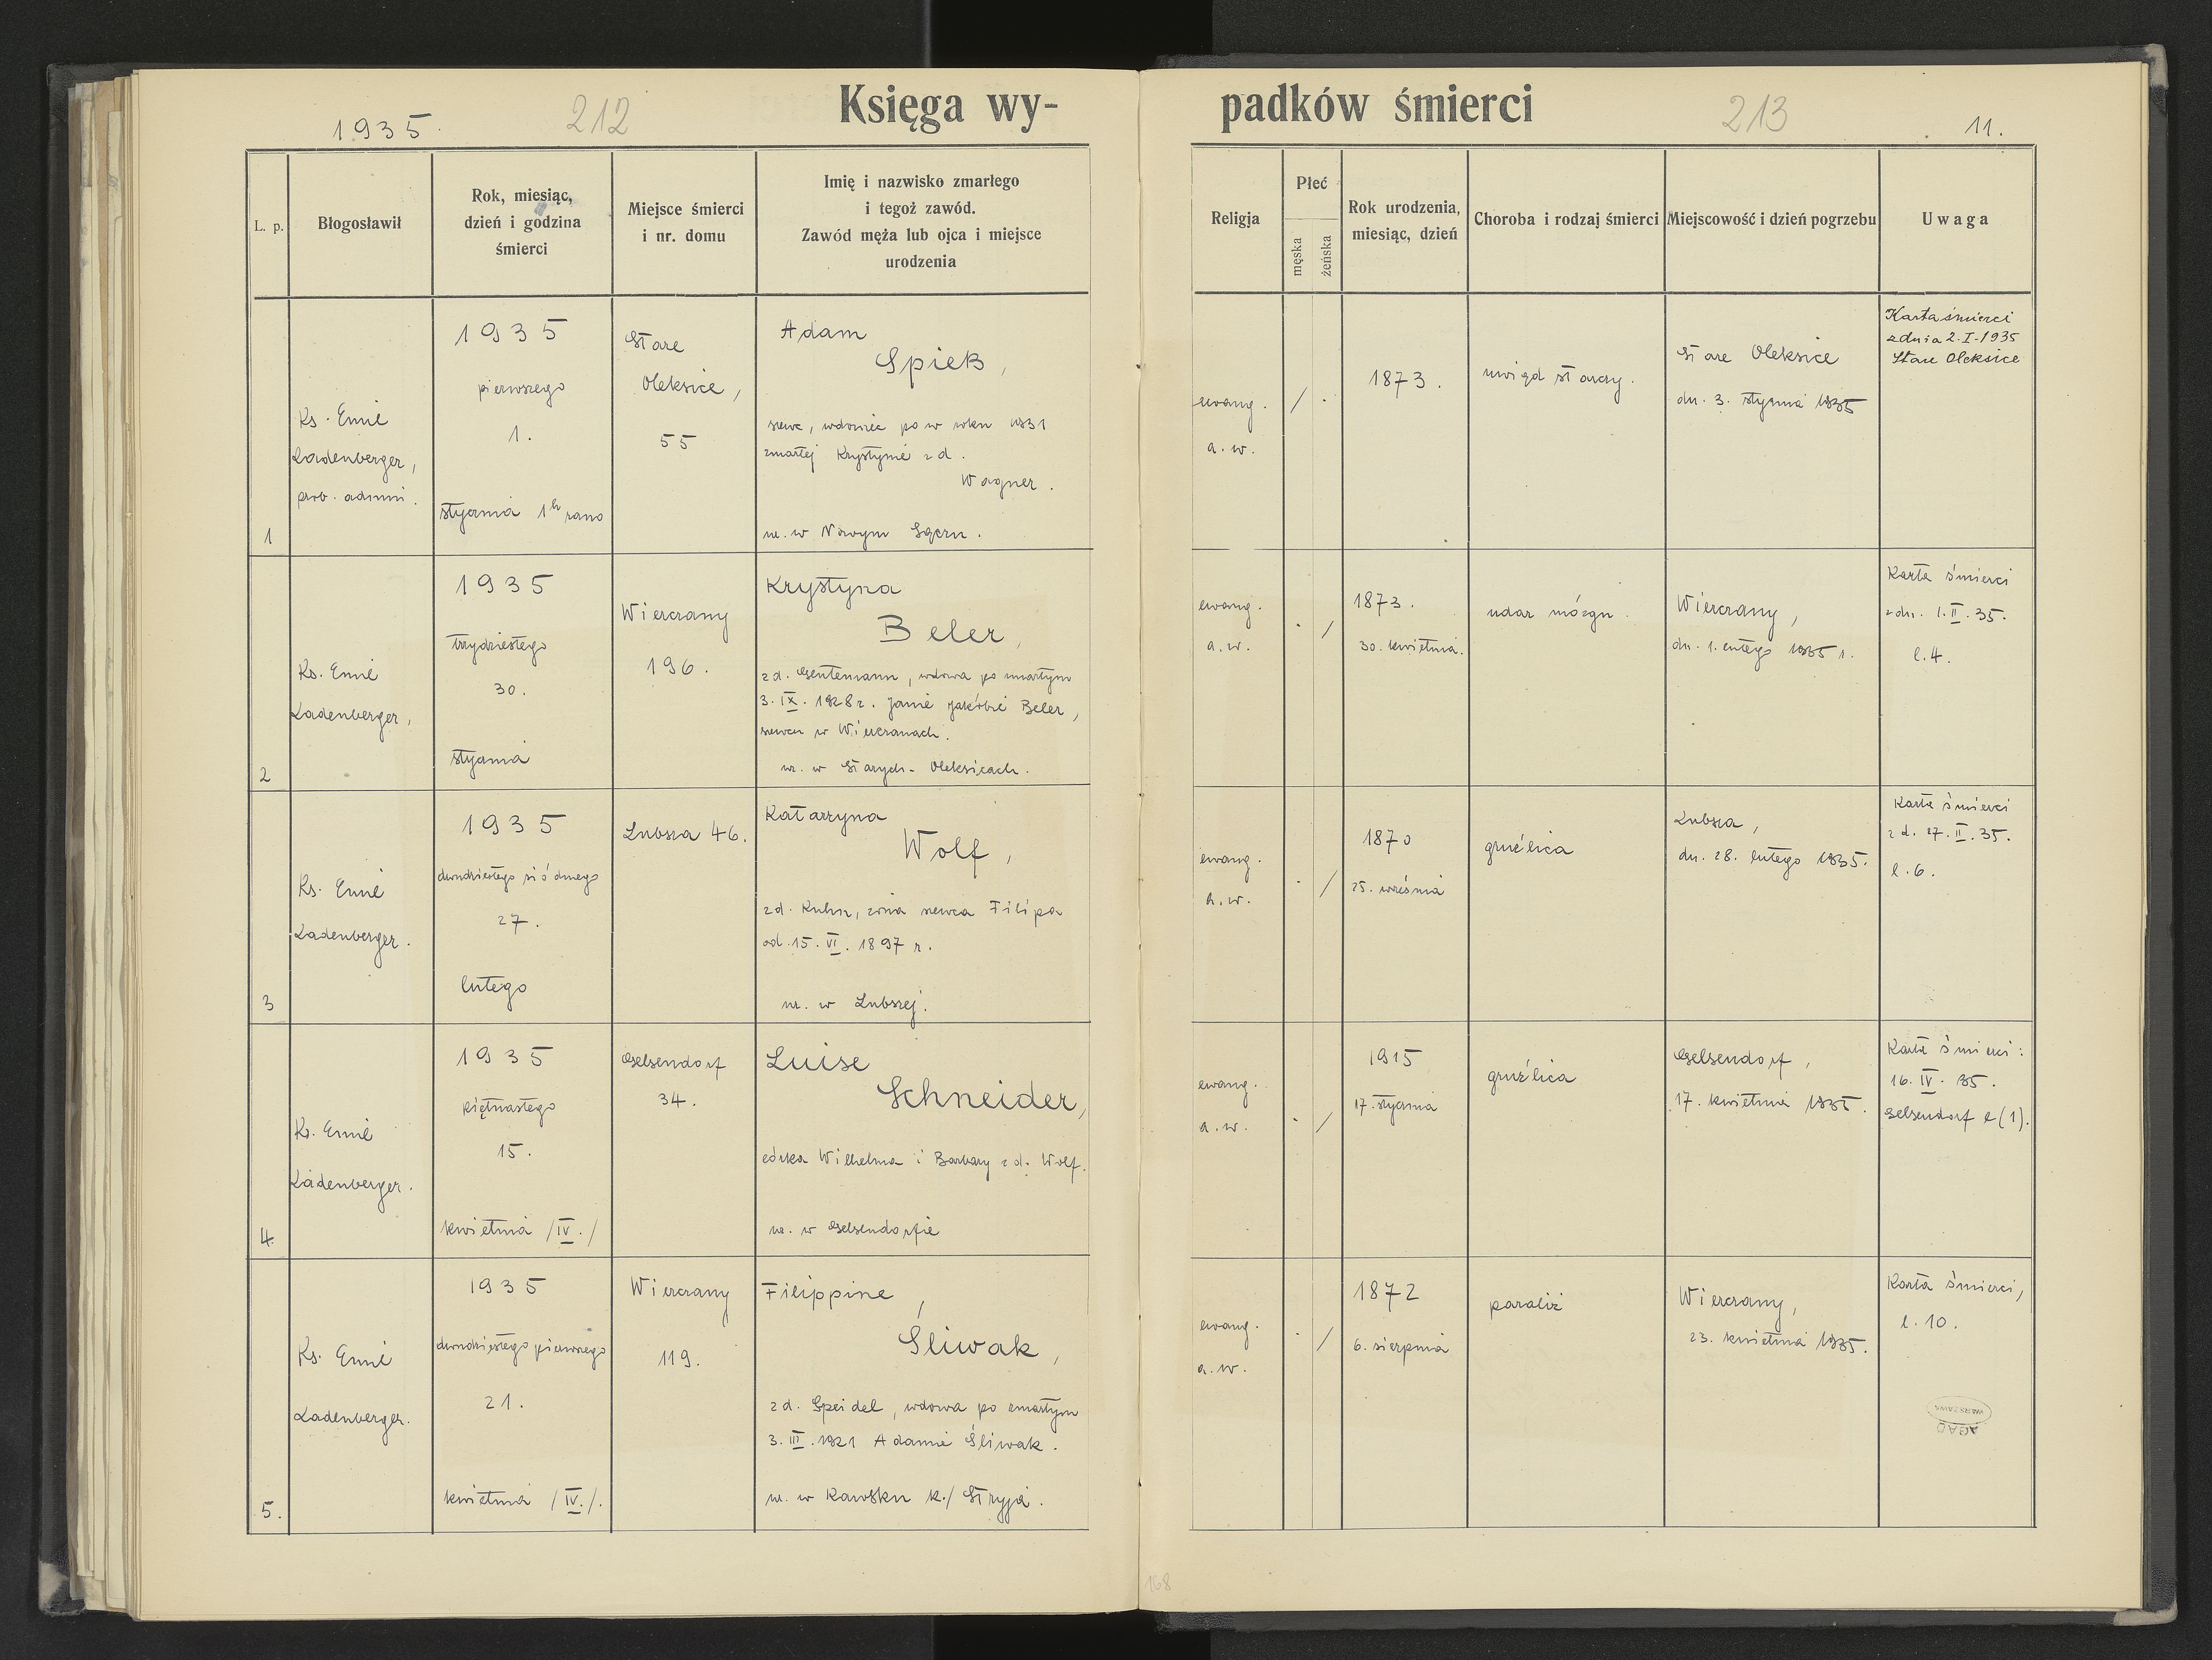 1935.
212
Księga wy-
padków śmierci
213
11.
L. p.
Błogosławił
Rok, miesiąc,
dzień i godzina
śmierci
Miejsce śmierci
i nr. domu
Imię i nazwisko zmarłego
i tegoż zawód.
Zawód męża lub ojca i miejsce
urodzenia
Religja
Płeć
męska
żeńska
Rok urodzenia,
miesiąc, dzień
Choroba i rodzaj śmierci
Miejscowość i dzień pogrzebu
Uwaga
1
Ks. Emil
Ladenberger,
prob. admin.
1935
pierwszego
1.
stycznia 1h rano
Stare
Oleksice,
55
Adam
Spieß,
szewc, wdowiec po w roku 1931
zmarłej Krystynie z d.
Wagner.
ur. w Nowym Sączu.
ewang.
a.w.
/ .
1873.
uwiąd starczy.
Stare Oleksice
dn. 3. stycznia 1935
Karta śmierci
z dnia 2.I.1935
Stare Oleksice
2
Ks. Emil
Ladenberger,
1935
trzydziestego
30.
stycznia
Wierczany
196.
Krystyna
Beler,
z d. Gentemann, wdowa po zmarłym
3.IX.1928 r. Janie Jakóbie Beler,
szewcu w Wierczanach.
ur. w Starych-Oleksicach.
ewang.
a.w.
. /
1873.
30. kwietnia.
udar mózgu.
Wierczany,
dn. 1. lutego 1935 r.
Karta śmierci
z dn. 1.II.35.
l.4.
3
Ks. Emil
Ladenberger.
1935
dwudziestego siódmego
27.
lutego
Lubsza 46.
Katarzyna
Wolf,
z d. Kuhn, żona szewca Filipa
od 15.VI.1897 r.
ur. w Lubszej.
ewang.
a.w.
. /
1870
25. września
gruźlica
Lubsza,
dn. 28. lutego 1935.
Karta śmierci
z d. 27.II.35.
l.6.
4.
Ks. Emil
Ladenberger.
1935
piętnastego
15.
kwietnia /IV./
Gelsendorf
34.
Luise
Schneider,
córka Wilhelma i Barbary z d. Wolf.
ur. w Gelsendorfie
ewang.
a.w.
. /
1915
17. stycznia
gruźlica
Gelsendorf,
17. kwietnia 1935.
Karta śmierci:
16.IV.35.
Gelsendorf l(1).
5.
Ks. Emil
Ladenberger.
1935
dwudziestego pierwszego
21.
kwietnia /IV./.
Wierczany
119.
Filippine,
Śliwak,
z d. Speidel, wdowa po zmarłym
3.III.1921 Adamie Śliwak.
ur. w Kawsku k./Stryja.
ewang.
a.w.
. /
1872
6. sierpnia
paraliż
Wierczany,
23. kwietnia 1935.
Karta śmierci,
l.10.
WARSZAWA
AGAD
168